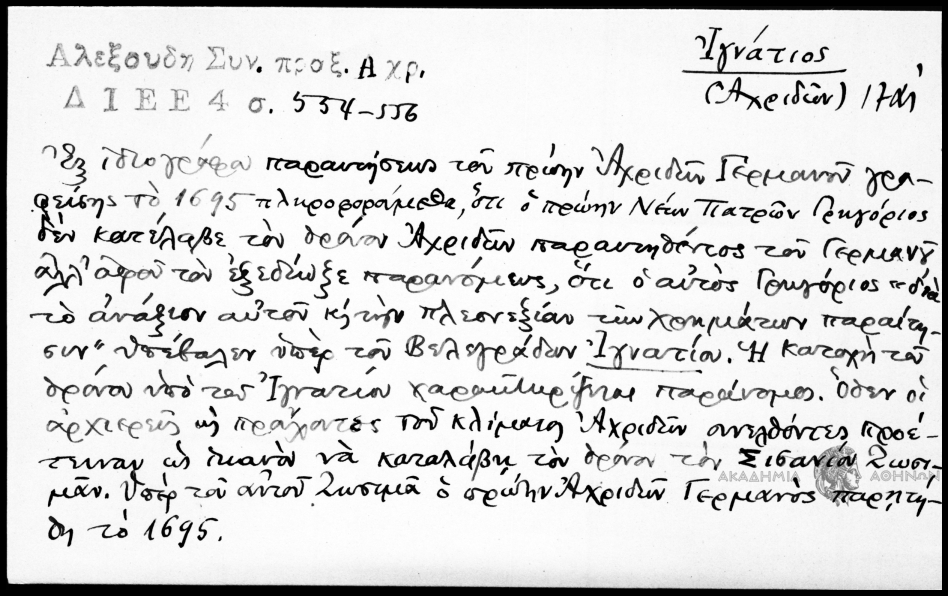 Αλεξουδη Συν. προξ. Αχρ.
ΔΙΕΕ 4 σ. 554-556
Ἰγνάτιος
(Ἀχριδῶν)
Ἐξ ἰδιογράφου παραιτήσεως τοῦ πρώην Ἀχριδῶν Γερμανοῦ γρα-
φείσης τὸ 1695 πληροφορούμεθα, ὅτι ὁ πρώην Νέων Πατρῶν Γρηγόριος
δὲν κατέλαβε τὸν θρόνον Ἀχριδῶν παραιτηθέντος τοῦ Γερμανοῦ
ἀλλ' ἀφοῦ τὸν ἐξεδίωξε παρανόμως, ὅτι ὁ αὐτὸς Γρηγόριος "διὰ
τὸ ἀνάξιον αὐτοῦ κ̀ τὴν πλεονεξίαν τῶν χρημάτων παραίτη-
σιν" ὑπέβαλεν ὑπὲρ τοῦ Βελεγράδων Ἰγνατίου. Ἡ κατοχὴ τοῦ
θρόνου ὑπὸ τοῦ Ἰγνατίου χαρακτηρίζεται παράνομος. Ὅθεν οἱ
ἀρχιερεῖς κ̀ πράχοντες τοῦ κλίματος Ἀχριδῶν συνελθόντες προέ-
τειναν ὡς ἱκανὸν νὰ καταλάβῃ τὸν θρόνον τὸν Σισανίου Ζωσι-
μᾶν. Ὑπὲρ τοῦ αὐτοῦ Ζωσιμᾶ ὁ πρώην Ἀχριδῶν Γερμανὸς παρῃτή-
θη τὸ 1695.
ΑΚΑΔΗΜΙΑ ΑΘΗΝΩΝ